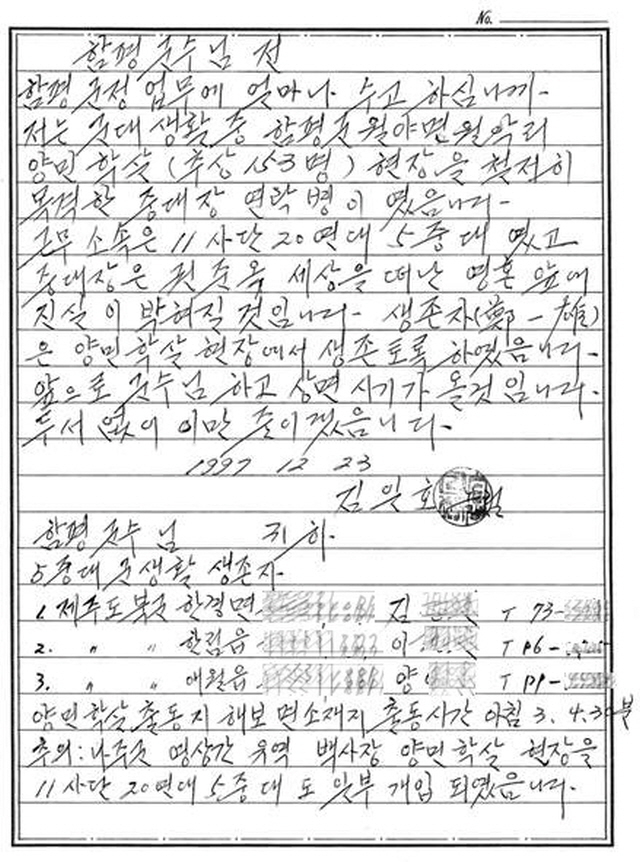 No.
함평 군수님 전
함평 군정 업무에 얼마나 수고 하심니까.
저는 군대 생활 중 함평군 월야면 월악리
양민 학살 (추상 153명) 현장을 철저히
목격한 중대장 연락병이 였음니다.
근무 소속은 11사단 20연대 5중대 였고
중대장은 권준옥 세상을 떠난 영혼 앞에
진실이 박혀질 것임니다. 생존자(鄭一雄)
은 양민학살 현장에서 생존토록 하였음니다.
앞으로 군수님 하고 상면 시기가 올것 임니다.
두서 없이 이만 줄이겠음니다.
1997 12 23
김일호
함평 군수님 귀하.
5중대 군생활 생존자
1. 제주도 북군 한경면 김 T 73-
2. 〃 〃 한림읍 이 T 96-
3. 〃 〃 애월읍 양 T 99-
양민학살 출동지 해보 면소재지 출동시간 아침 3. 4.30분
추의: 나주군 영상강 유역 백사장 양민학살 현장을
11사단 20연대 5중대도 일부 개입 되였음니다.